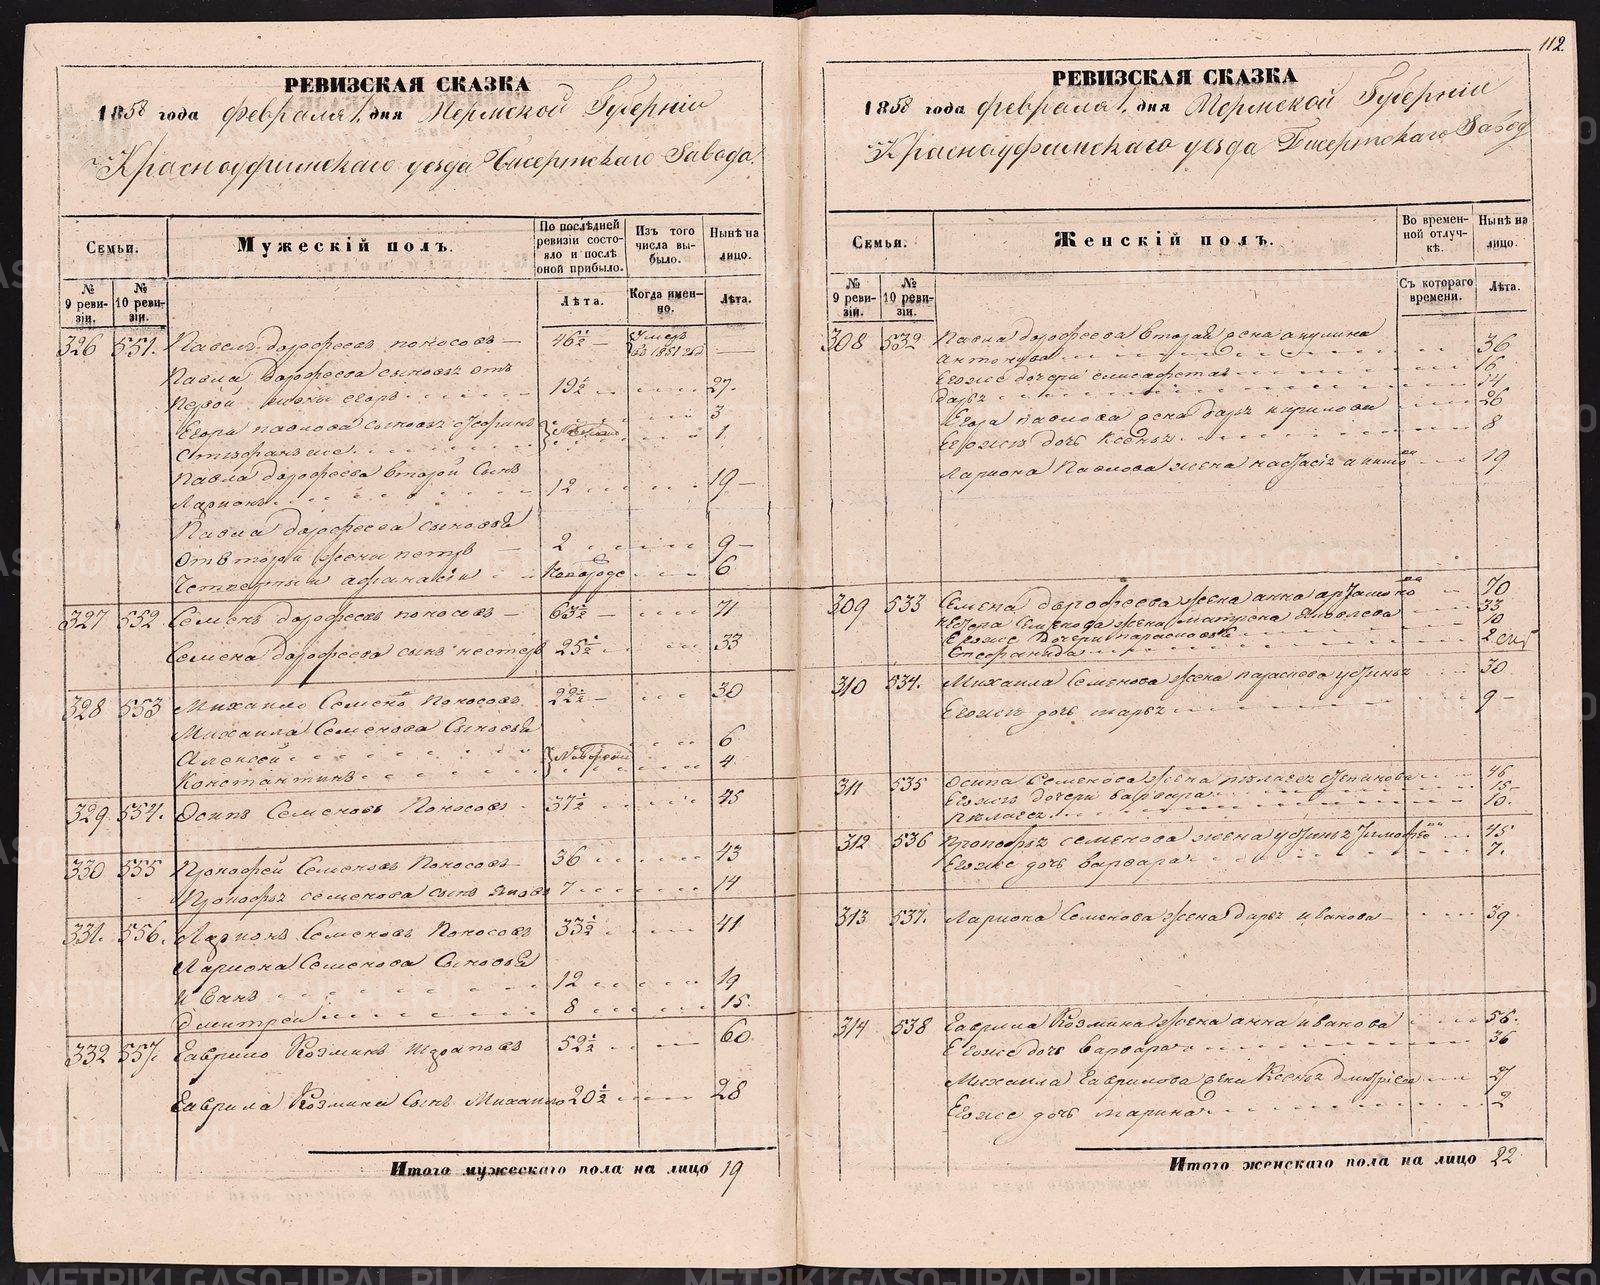 112.
РЕВИЗСКАЯ СКАЗКА
1858 года февраля 1. дня Пермской Губернiи
Красноуфимскаго уезда Бисертскаго Завода
Семьи.
Мужескiй полъ.
По послѣдней ревизiи состояло и послѣ оной прибыло.
Изъ того числа выбыло.
Нынѣ на лицо.
№ 9 ревизiи.
№ 10 ревизiи.
Лѣта.
Когда именно.
Лѣта.
326 551. Павелъ дорофеевъ поносовъ 46½ Умеръ въ 1851 году
Павла дорофеева сыновья отъ
первой жены егоръ 19½ 27.
Егора павлова сыновья 3
1
Павла дорофеева второй сынъ
Ларионъ 12 19
Павла дорофеева сыновья
От второй жены петръ 2 9
Четвертый афанасiй 6
327 552 Семенъ дорофеевъ поносовъ 63½ 71
Семена дорофеева сынъ нестеръ 25½ 33
328 553 Михаило Семеновъ Поносовъ 22½ 30
Михаила Семенова Сыновья
Алексей 6
Константинъ 4
329 554. Осипъ Семеновъ Поносовъ 37½ 45
330 555 Прокофей Семеновъ Поносовъ 36 43
Прокофья семенова сынъ Яковъ 7 14
331. 556. Ларионъ Семеновъ Поносовъ 33½ 41
Лариона Семенова Сыновья
Иванъ 12 19
дмитрей 8 15
332 557. Гаврило Козминъ 52½ 60
Гаврила Козмина Сынъ Михаило 20½ 28
Итого мужескаго пола на лицо 19
РЕВИЗСКАЯ СКАЗКА
1858 года февраля 1. дня Пермской Губернiи
Красноуфимскаго уезда Бисертскаго Завод
Семьи.
Женскiй полъ.
Во временной отлучкѣ.
Нынѣ на лицо.
№ 9 ревизiи.
№ 10 ревизiи.
Съ котораго времени.
Лѣта.
308 532 Павла дорофеева второй жена акулина
антонова 36
Егоже дочери елисафета 16
дарья 14
Егора павлова жена дарья кирилова 26
Егоже дочь Ксенья 8
Лариона Павлова жена настасья 19
309 533 Семена дорофеева жена анна 70
Нестера Семенова жена матрена Яковлева 33
Егоже дочери парасковья 10
Степанида 2
310 534. Михаила Семенова жена парасковья 30
Егоже дочь марья 9
311 535 Осипа Семенова жена пелагея 46
Егоже дочери варвара 15
пелагея 10.
312 536 Прокофья семенова жена устинья 45
Егоже дочь варвара 7.
313 537. Лариона Семенова жена дарья иванова 39
314 538 Гаврила Козмина жена анна иванова 56.
Егоже дочь варвара 36
Михаила Гаврилова жена Ксенья 27
Егоже дочь марина 2
Итого женскаго пола на лицо 22
METRIKI.GASO-URAL.RU